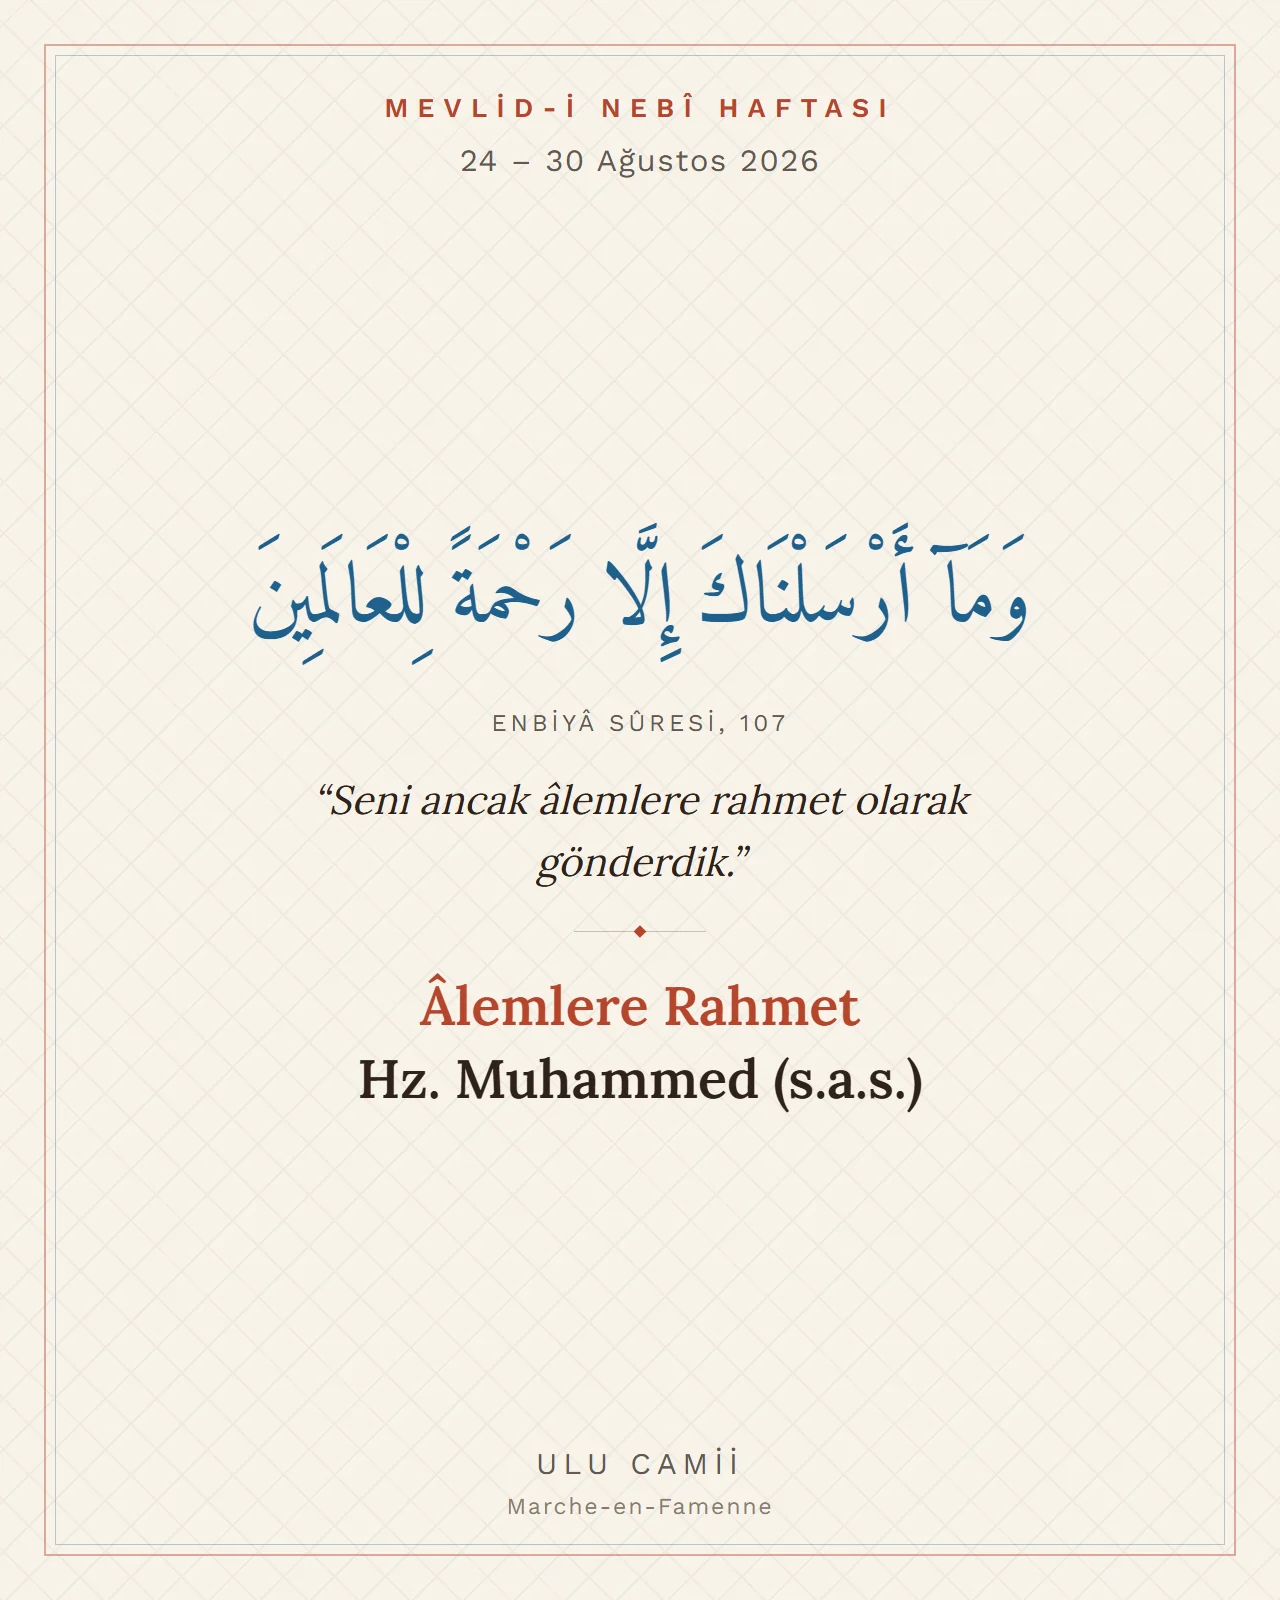 MEVLİD-İ NEBÎ HAFTASI
24 – 30 Ağustos 2026
وَمَآ أَرْسَلْنَاكَ إِلَّا رَحْمَةً لِلْعَالَمِينَ
ENBİYÂ SÛRESİ, 107
“Seni ancak âlemlere rahmet olarak
gönderdik.”
Âlemlere Rahmet
Hz. Muhammed (s.a.s.)
ULU CAMİİ
Marche-en-Famenne